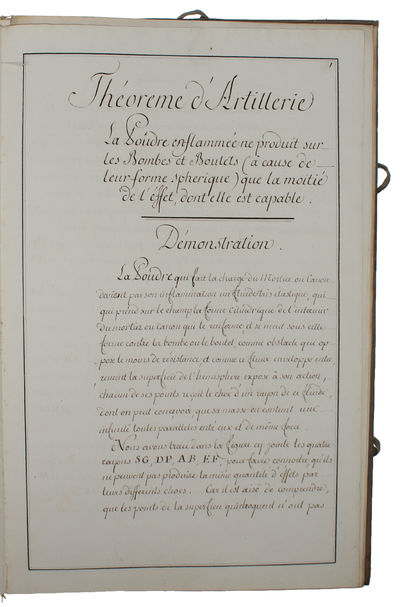 1
Théoreme d'Artillerie
La Poudre enflammée ne produit sur
les Bombes et Boulets (a cause de
leur forme spherique) que la moitié
de l'éffet, dont elle est capable.
Démonstration.
La Poudre qui fait la charge du Mortier ou Canon
devient par son inflammation un fluide très elastique, qui
qui prend sur le champ la forme cilindrique de l'interieur
du mortier ou canon qui le renferme, et se meut sous cette
forme contre la bombe ou le boulet, comme obstacle qui op
pose le moins de résistance, et comme ce fluide enveloppe entie
rement la superficie de l'hemisphere exposé à son action,
chacun de ses points reçoit le choc d'un rayon de ce fluide,
dont on peut concevoir, que sa masse en contient une
infinité toutes paralleles entr'eux et de même force.
Nous avons tracé dans la figure cy jointe les quatre
rayons SG, DP, AB, EF, pour faire connoitre, qu'ils
ne peuvent pas produire la même quantité d'éffets par
leurs differents chocs. Car il est aisé de comprendre,
que les points de la superficie qu'ils choquent n'ont pas